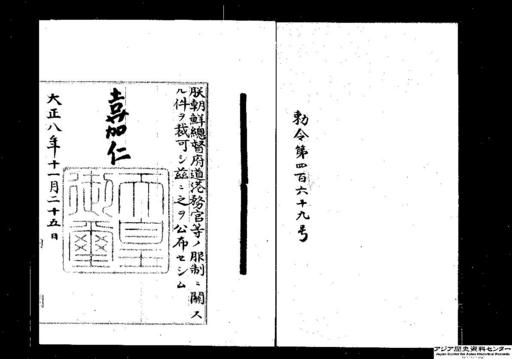 勅令第四百六十九号
朕朝鮮總督府道港務官等ノ服制ニ關ス
ル件ヲ裁可シ茲ニ之ヲ公布セシム
嘉仁
天皇
御璽
大正八年十一月二十五日
アジア歴史資料センター
Japan Center for Asian Historical Records